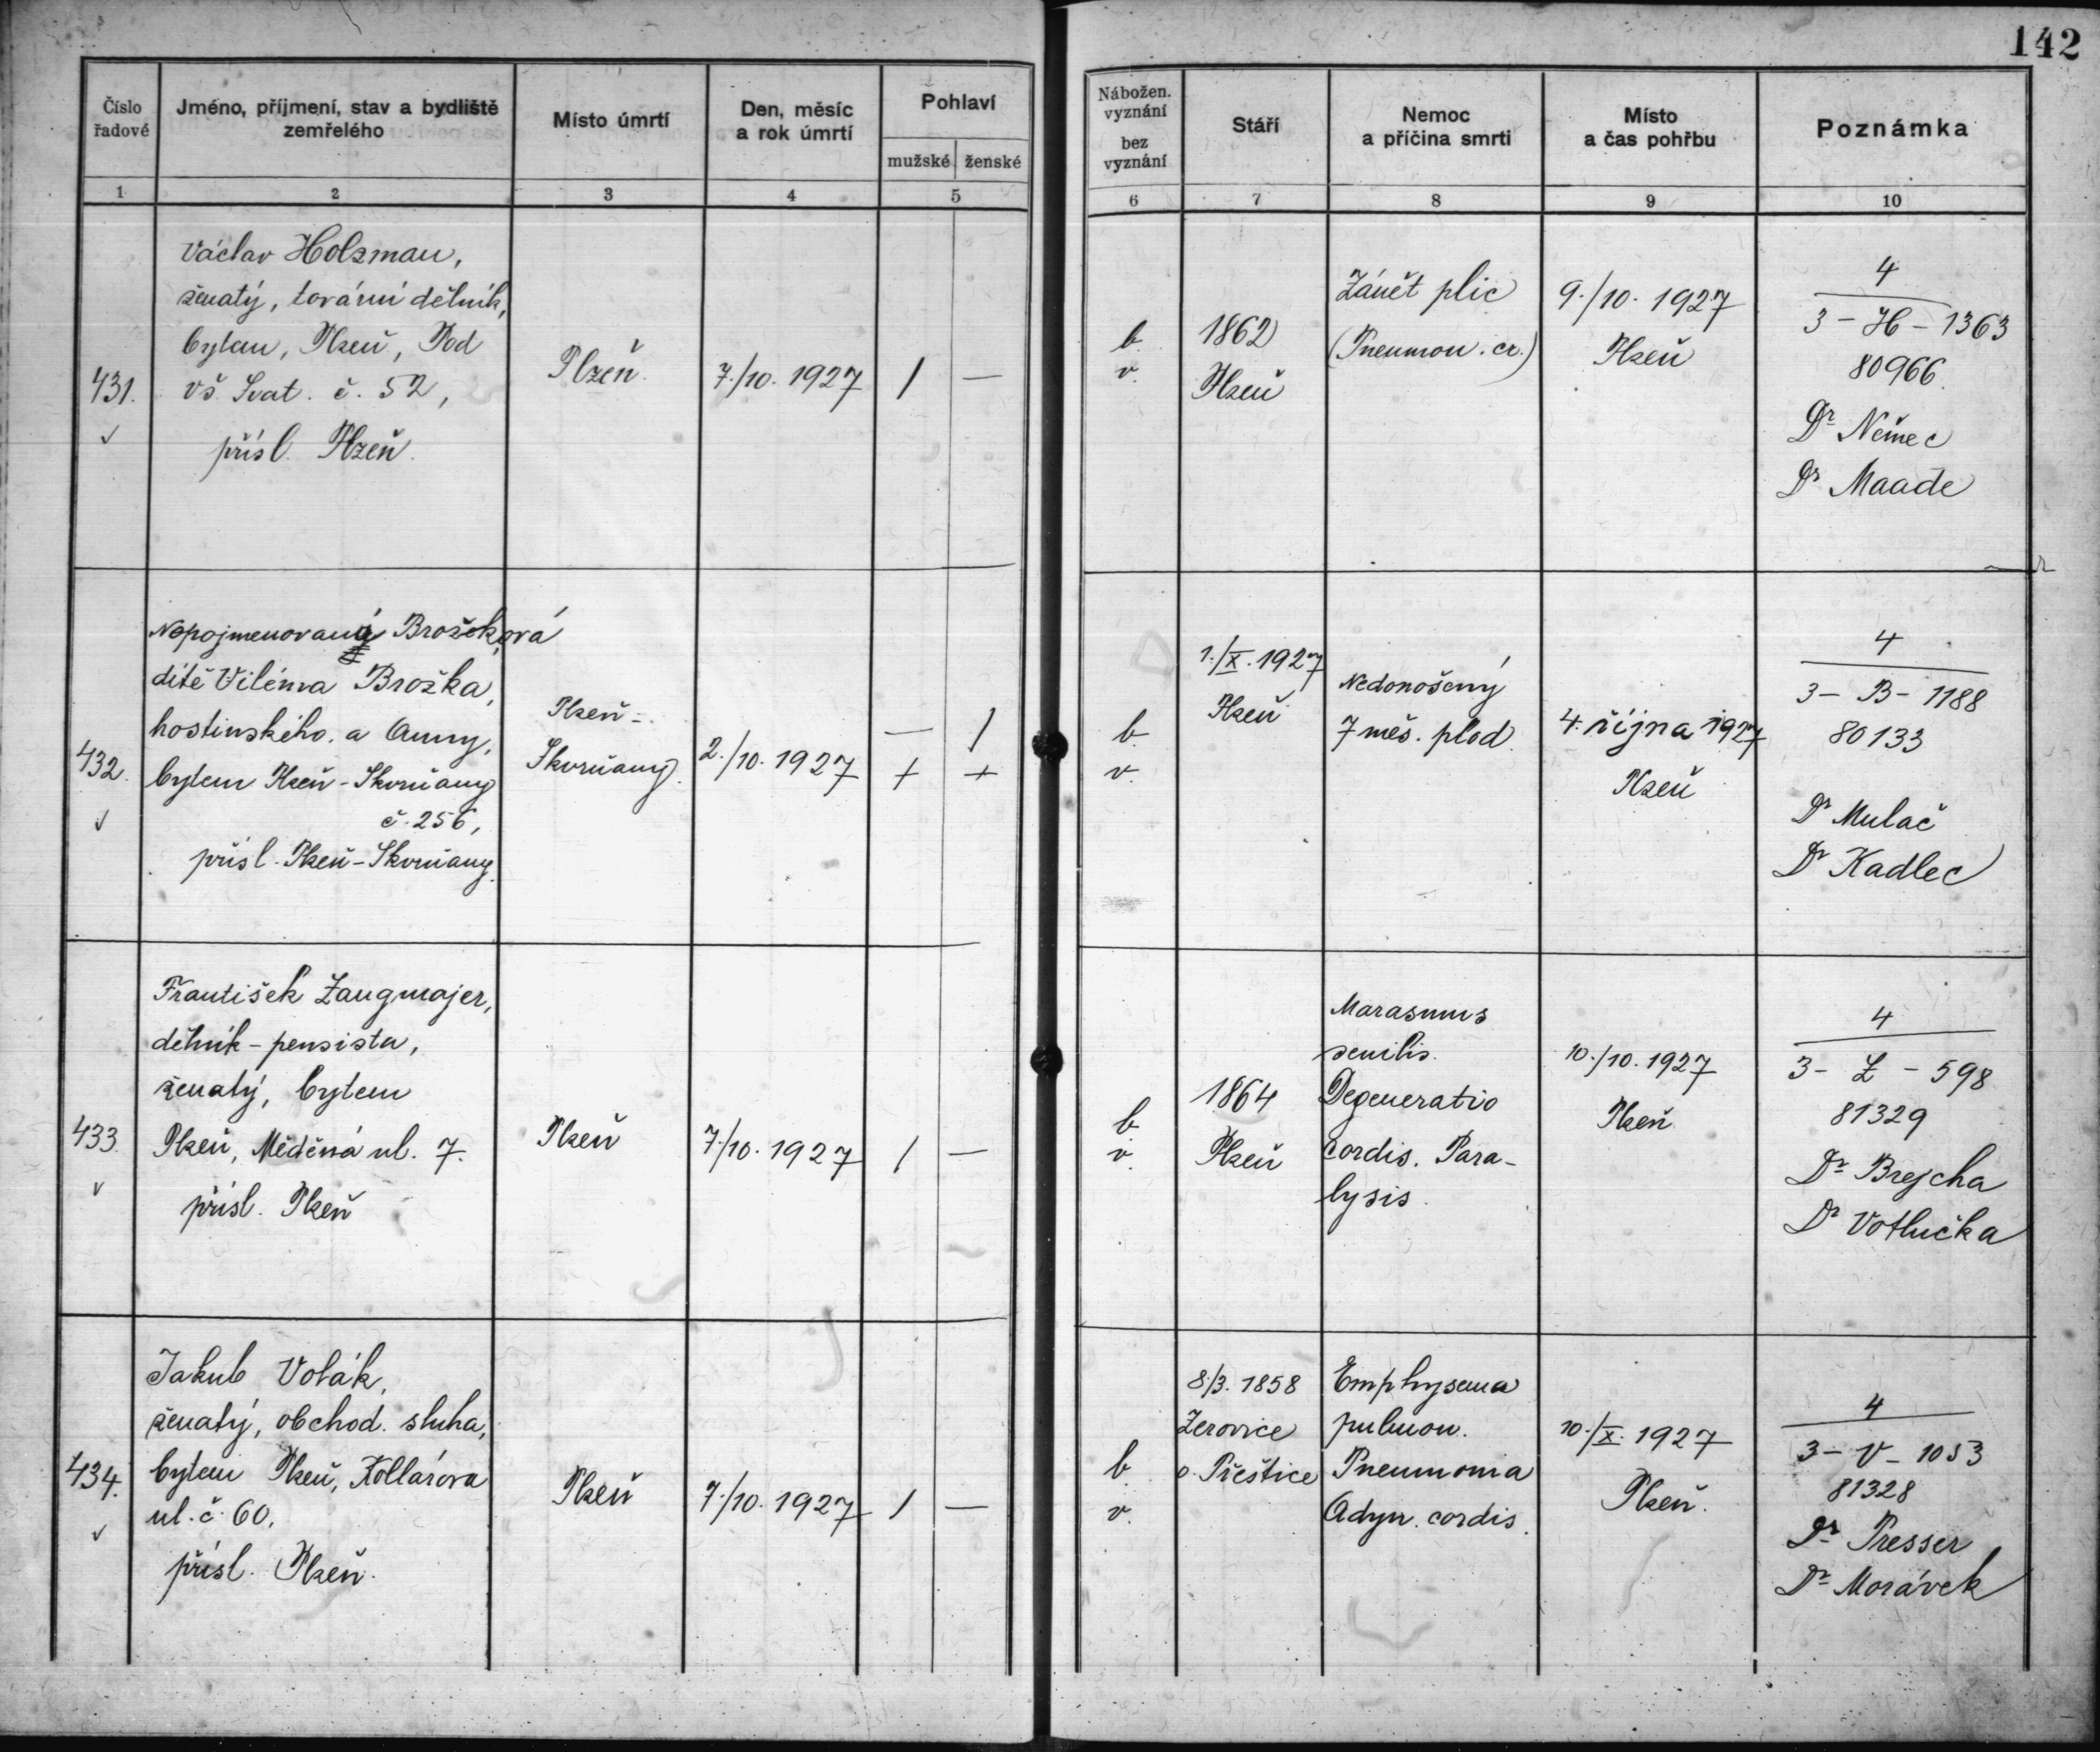 142
Číslo řadové
Jméno, příjmení, stav a bydliště zemřelého
Místo úmrtí
Den, měsíc a rok úmrtí
Pohlaví
mužské ženské
Nábožen. vyznání
bez vyznání
Stáří
Nemoc a příčina smrti
Místo a čas pohřbu
Poznámka
1 2 3 4 5 6 7 8 9 10
431.
Václav Holzman,
ženatý, tovární dělník,
bytem, Plzeň, Pod
vš. Svat. č. 52,
přísl. Plzeň.
Plzeň.
7./10. 1927
/ —
b.
v.
1862
Plzeň
Zánět plic
(Pneumon. cr.)
9./10. 1927
Plzeň
4
3 - H - 1363
80966.
Dr Němec
Dr Maade
432.
Nepojmenovaná Brožková
dítě Viléma Brožka,
hostinského. a Anny,
bytem Plzeň - Skvrňany
č. 256,
přísl. Plzeň - Skvrňany.
Plzeň -
Skvrňany.
2./10. 1927
— /
+ +
b.
v.
1./X. 1927
Plzeň
Nedonošený
7 měs. plod.
4. října 1927
Plzeň
4
3 - B - 1188
80133
Dr Mulač
Dr Kadlec
433.
František Zangmajer,
dělník - pensista,
ženatý, bytem
Plzeň, Měděná ul. 7.
přísl. Plzeň
Plzeň
7./10. 1927
/ —
b.
v.
1864
Plzeň
Marasmus
senilis.
Degeneratio
cordis. Para-
lysis.
10./10. 1927
Plzeň
4
3 - Z - 598
81329
Dr Brejcha
Dr Votlučka
434.
Jakub Volák,
ženatý, obchod. sluha,
bytem Plzeň, Kollárova
ul. č. 60,
přísl. Plzeň.
Plzeň
7./10. 1927
/ —
b.
v.
8./3. 1858
Zerovice
o. Přeštice
Emphysema
pulmon.
Pneumonia
Adyn. cordis.
10./X. 1927
Plzeň.
4
3 - V - 1053
81328
Dr Presser
Dr Morávek